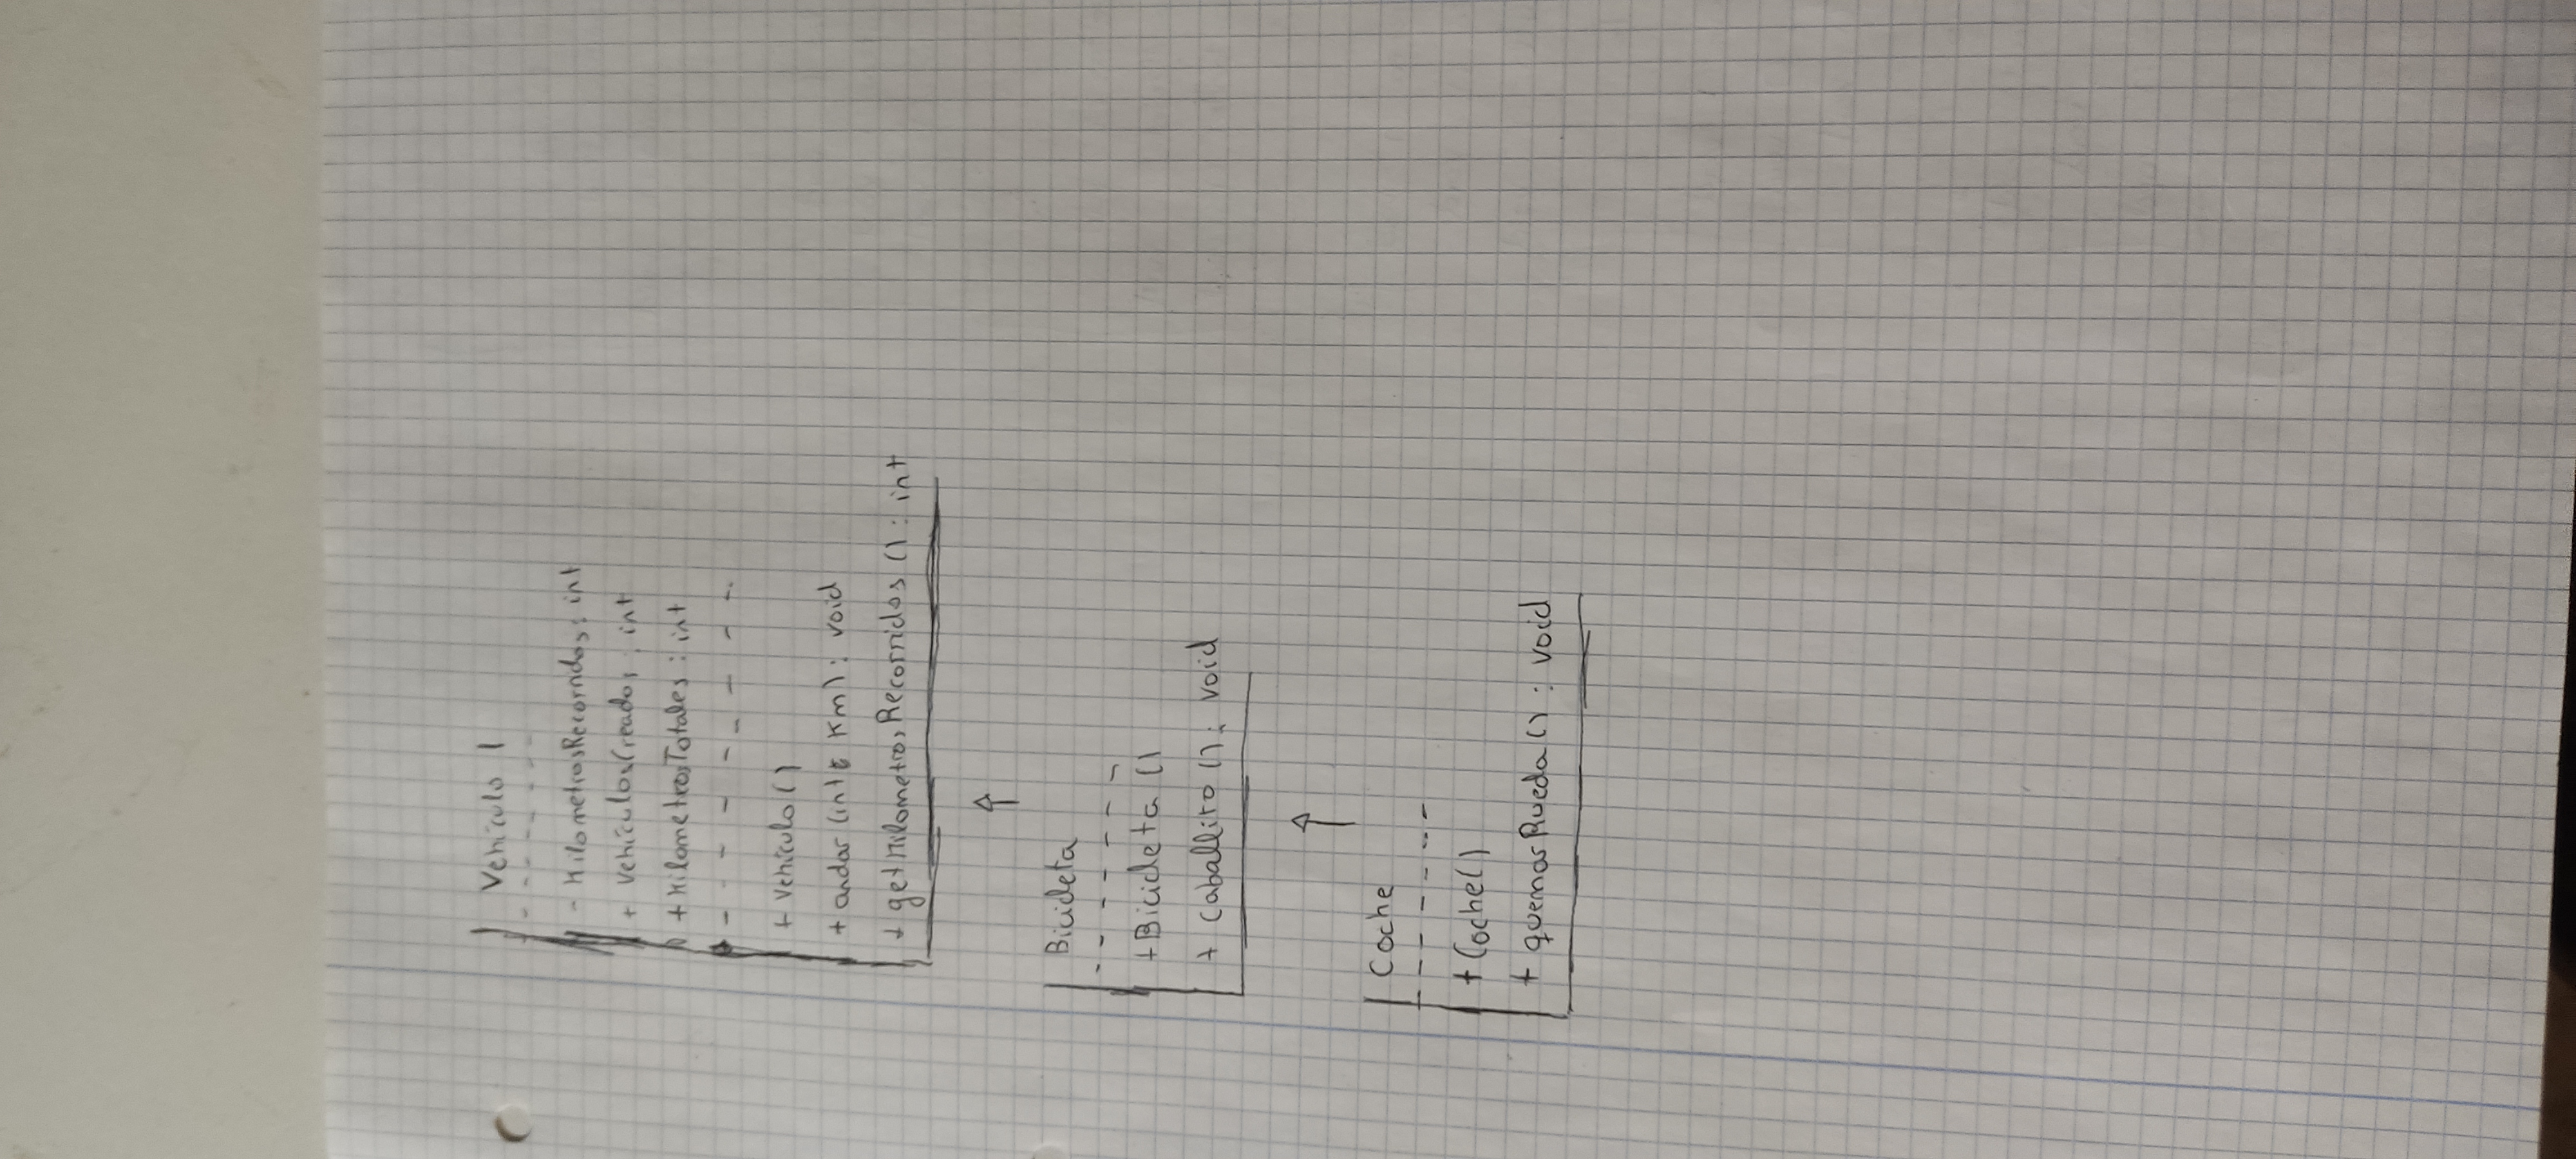 Vehículo
- KilometrosRecorridos: int
+ VehículosCreados: int
+ KilometrosTotales: int
+ Vehículo()
+ andar (int km): void
+ getKilometrosRecorridos (): int
Bicicleta
+ Bicicleta ()
+ Caballito (): void
Coche
+ Coche()
+ quemarRueda (): void